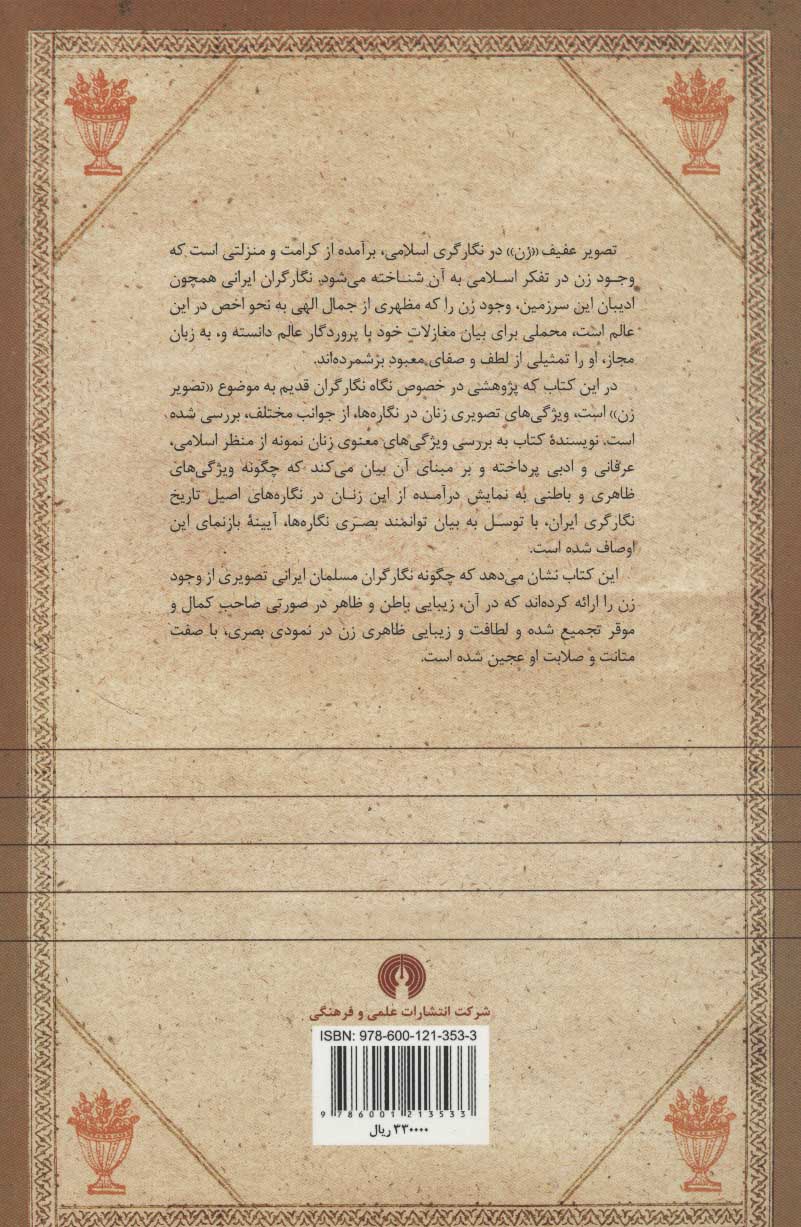 تصویر عفیف «زن» در نگارگری اسلامی، برآمده از کرامت و منزلتی است که
وجود زن در تفکر اسلامی به آن شناخته می‌شود. نگارگران ایرانی همچون
ادیبان این سرزمین، وجود زن را که مظهری از جمال الهی به نحو اخص در این
عالم است، محملی برای بیان مغازلات خود با پروردگار عالم دانسته و، به زبان
مجاز، او را تمثیلی از لطف و صفای معبود برشمرده‌اند.
در این کتاب که پژوهشی در خصوص نگاه نگارگران قدیم به موضوع «تصویر
زن» است، ویژگی‌های تصویری زنان در نگاره‌ها، از جوانب مختلف، بررسی شده
است. نویسندهٔ کتاب به بررسی ویژگی‌های معنوی زنان نمونه از منظر اسلامی،
عرفانی و ادبی پرداخته و بر مبنای آن بیان می‌کند که چگونه ویژگی‌های
ظاهری و باطنی به نمایش درآمده از این زنان در نگاره‌های اصیل تاریخ
نگارگری ایران، با توسل به بیان توانمند بصری نگاره‌ها، آیینهٔ بازنمای این
اوصاف شده است.
این کتاب نشان می‌دهد که چگونه نگارگران مسلمان ایرانی تصویری از وجود
زن را ارائه کرده‌اند که در آن، زیبایی باطن و ظاهر در صورتی صاحب کمال و
موقر تجمیع شده و لطافت و زیبایی ظاهری زن در نمودی بصری، با صفت
متانت و صلابت او عجین شده است.
شرکت انتشارات علمی و فرهنگی
ISBN: 978-600-121-353-3
9 786001 213533
۳۳۰۰۰۰ ریال